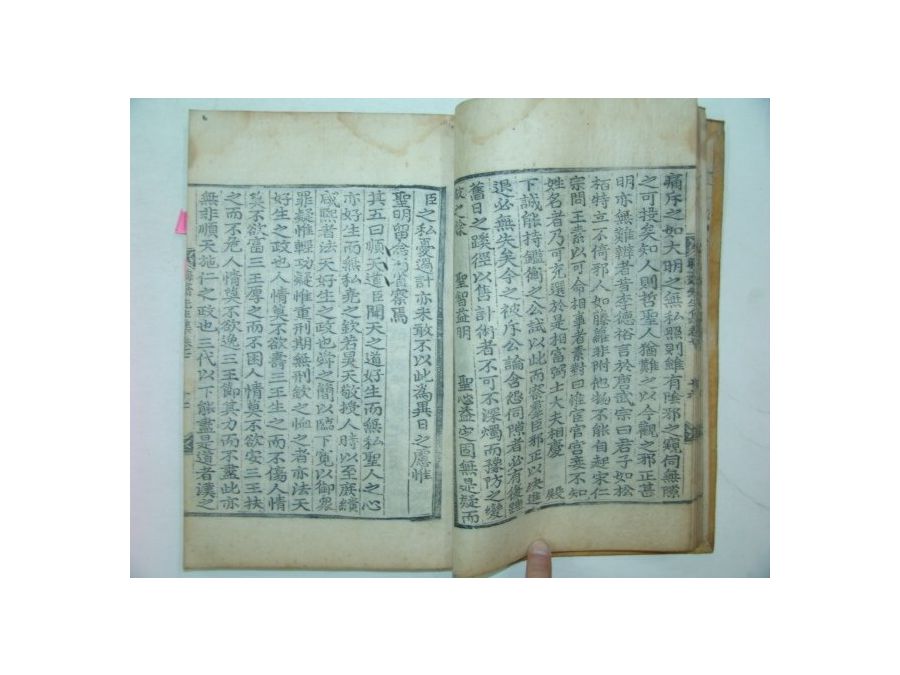 痛斥之如大明之無私照則雖有陰邪之窺伺無隙
之可投矣知人則哲聖人猶難之以今觀之邪正甚
明亦無難辨者昔李德裕言於唐武宗曰君子如松
栢特立不倚邪人如藤蘿非附他物不能自起宋仁
宗問王素以可命相事者素對曰惟宦官宮妾不知
姓名者乃可充選於是相富弼士大夫相慶 殿
下誠能持鑑衡之公試以此而察羣臣邪正以決進
退必無失矣今之被斥公論含怨伺隙者必有
舊日之蹊徑以售計術者不可不深燭而豫防之變
故之餘 聖智益明 聖心益定固無是疑而
臣之私憂過計亦未敢不以此為異日之慮惟
聖明留念 察焉
其五曰順天道臣聞天之道好生而無私聖人之心
亦好生而無私堯之欽若昊天敬授人時以至庶績
咸熙者法天好生之政也舜之簡以臨下寬以御衆
罪疑惟輕功疑惟重刑期無刑欽之恤之者亦法天
好生之政也人情莫不欲壽三王生之而不傷人情
莫不欲富三王厚之而不困人情莫不欲安三王扶
之而不危人情莫不欲逸三王節其力而不盡此亦
無非順天施仁之政也三代以下能盡是道者漢之